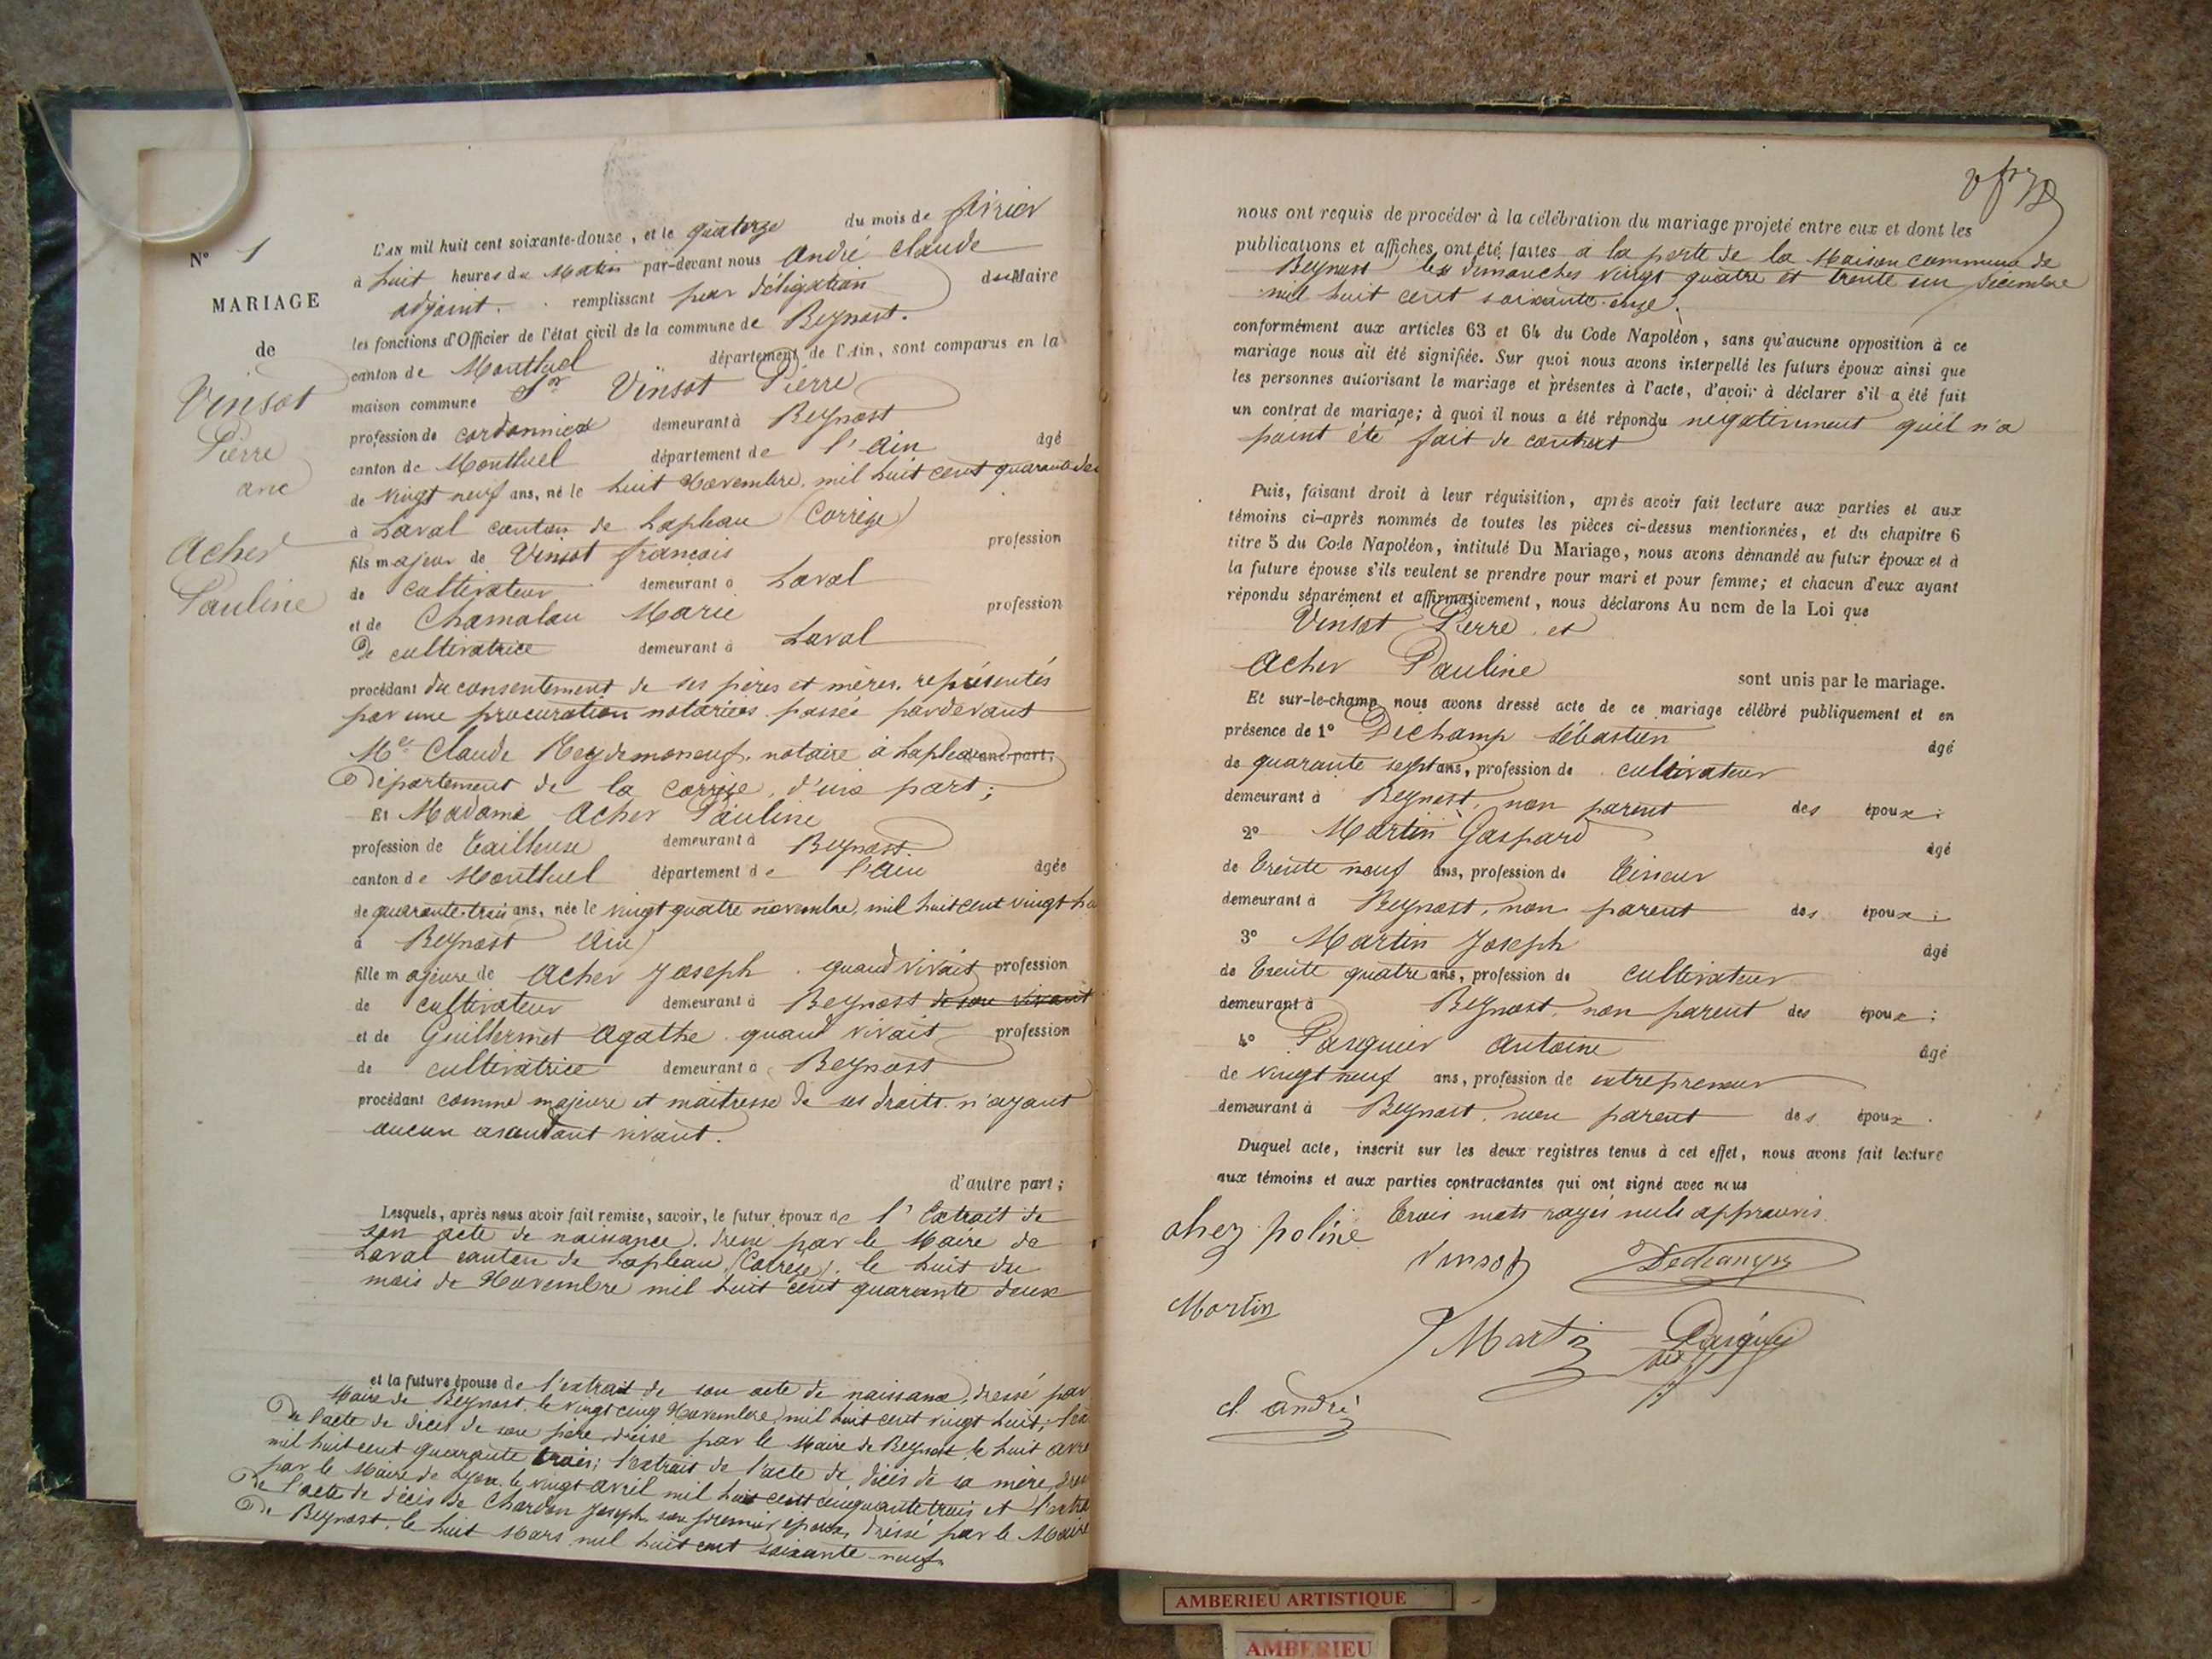 N° 1
MARIAGE
de
Vinsot
Pierre
and
Acher
Pauline
L'AN mil huit cent soixante-douze, et le quatorze du mois de février
à huit heures du Matin par-devant nous André Claude
adjoint. remplissant par déligation du Maire
les fonctions d'Officier de l'état civil de la commune de Beynost.
canton de Montluel département de l'Ain, sont comparus en la
maison commune Sr Vinsot Pierre
profession de cordonnier demeurant à Beynost
canton de Montluel département de l'Ain âgé
de vingt neuf ans, né le huit Novembre mil huit cent quarante deu
à Laval canton de Lapleau (Corrèze)
fils majeur de Vinsot françois profession
de cultivateur demeurant à Laval
et de Chamalau Marie profession
De cultivatrice demeurant à Laval
procédant du consentement de ses pères et mères. représentés
par une procuration notariées passée pardevant
Me Claude notaire à Lapleau d'une part;
Département de la Corrèze, d'une part;
Et Madame Acher Pauline
profession de tailleuse demeurant à Beynost.
canton de Montluel département de l'Ain âgée
de quarante-trois ans, née le vingt quatre novembre, mil huit cent vingt hu
à Beynost Ain)
fille majeure de Acher Joseph quand vivait profession
de cultivateur demeurant à Beynost de son vivant
et de Guillermet Agathe quand vivait profession
de cultivatrice demeurant à Beynost
procédant comme majeure et maitresse de ses droits. n'ayant
aucun asandant vivant.
d'autre part;
Lesquels, après nous avoir fait remise, savoir, le futur époux de l'Extrait de
son acte de naissance, dressé par le Maire de
Laval canton de Lapleau (Corrèze). le huit du
mois de Novembre mil huit cent quarante deux
et la future épouse de l'extrait de son acte de naissance, dressé par
Maire de Beynost, le vingt cinq Novembre mil huit cent vingt huit; l'ex
De l'acte de décès de son père dréssé par le Maire de Beynost le huit avri
mil huit cent quarante trois; l'extrait de l'acte de décès de sa mère, dres
par le Maire de Lyon, le vingt avril mil huit cent cinquante trois et l'extra
De l'acte de décès de Chardon Joseph son premier époux, dréssé par le Maire
De Beynost. le huit Mars mil huit cent soixante-neuf.
nous ont requis de procéder à la célébration du mariage projeté entre eux et dont les
publications et affiches ont été faites a la porte de la Maison commune de
Beynost les dimanches vingt quatre et trente un Décembre
mil huit cent soixante-onze.
conformément aux articles 63 et 64 du Code Napoléon, sans qu'aucune opposition à ce
mariage nous ait été signifiée. Sur quoi nous avons interpellé les futurs époux ainsi que
les personnes autorisant le mariage et présentes à l'acte, d'avoir à déclarer s'il a été fait
un contrat de mariage; à quoi il nous a été répondu négativement qu'il n'a
point été fait de contrat
Puis, faisant droit à leur réquisition, après avoir fait lecture aux parties et aux
témoins ci-après nommés de toutes les pièces ci-dessus mentionnées, et du chapitre 6
titre 5 du Code Napoléon, intitulé Du Mariage, nous avons demandé au futur époux et à
la future épouse s'ils veulent se prendre pour mari et pour femme; et chacun d'eux ayant
répondu séparément et affirmativement, nous déclarons Au nom de la Loi que
Vinsot Pierre. et
Acher Pauline
sont unis par le mariage.
Et sur-le-champ nous avons dressé acte de ce mariage célébré publiquement et en
présence de 1° Dechamp Sébastien âgé
de quarante sept ans, profession de cultivateur
demeurant à Beynost, non parent des époux;
2° Martin Gaspard âgé
de trente neuf ans, profession de
demeurant à Beynost, non parent des époux;
3° Martin Joseph âgé
de trente quatre ans, profession de cultivateur
demeurant à Beynost, non parent des époux;
4° Pasquier Antoine âgé
de vingt neuf ans, profession de entrepreneur
demeurant à Beynost, non parent des époux.
Duquel acte, inscrit sur les deux registres tenus à cet effet, nous avons fait lecture
aux témoins et aux parties contractantes qui ont signé avec nous
trois mots rayés nuls approuvés.
chez poline
Vinsot Dechamp
Martin
J Martin Pasquier
cl. andré
AMBERIEU ARTISTIQUE
AMBERIEU